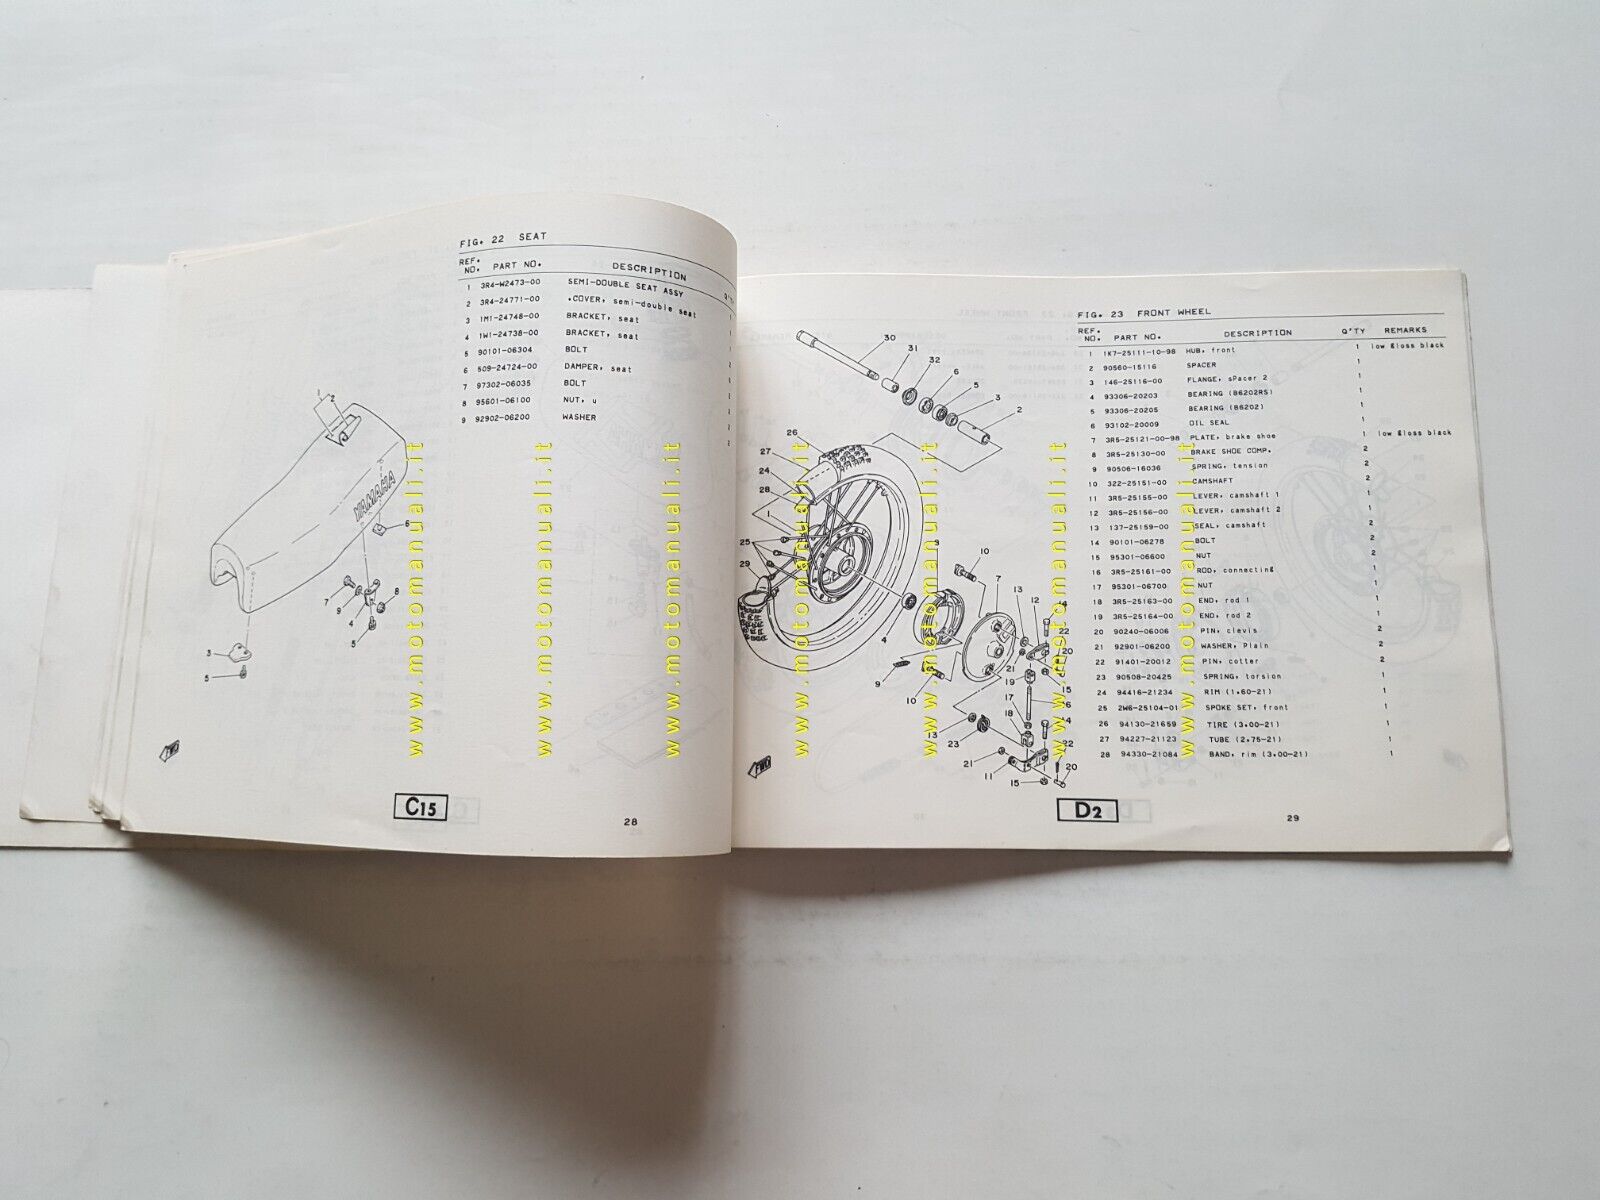 FIG. 22 SEAT
REF. NO. PART NO. DESCRIPTION Q'TY
1 3R4-W2473-00 SEMI-DOUBLE SEAT ASSY 1
2 3R4-24771-00 .COVER, semi-double seat 1
3 1M1-24748-00 BRACKET, seat
4 1W1-24738-00 BRACKET, seat
5 90101-06304 BOLT
6 509-24724-00 DAMPER, seat
7 97302-06035 BOLT
8 95601-06100 NUT, u
9 92902-06200 WASHER
YAMAHA
FWD
C15
28
FIG. 23 FRONT WHEEL
REF. NO. PART NO. DESCRIPTION Q'TY REMARKS
1 1K7-25111-10-98 HUB, front 1 low gloss black
2 90560-15116 SPACER 1
3 146-25116-00 FLANGE, spacer 2 1
4 93306-20203 BEARING (B6202RS) 1
5 93306-20205 BEARING (B6202) 1
6 93102-20009 OIL SEAL 1
7 3R5-25121-00-98 PLATE, brake shoe 1 low gloss black
8 3R5-25130-00 BRAKE SHOE COMP. 2
9 90506-16036 SPRING, tension 2
10 322-25151-00 CAMSHAFT 2
11 3R5-25155-00 LEVER, camshaft 1 1
12 3R5-25156-00 LEVER, camshaft 2 1
13 137-25159-00 SEAL, camshaft 2
14 90101-06278 BOLT 2
15 95301-06600 NUT 2
16 3R5-25161-00 ROD, connecting 1
17 95301-06700 NUT 1
18 3R5-25163-00 END, rod 1 1
19 3R5-25164-00 END, rod 2 1
20 90240-06006 PIN, clevis 2
21 92901-06200 WASHER, plain 2
22 91401-20012 PIN, cotter 2
23 90508-20425 SPRING, torsion 1
24 94416-21234 RIM (1.60-21) 1
25 2W6-25104-01 SPOKE SET, front 1
26 94130-21659 TIRE (3.00-21) 1
27 94227-21123 TUBE (2.75-21) 1
28 94330-21084 BAND, rim (3.00-21) 1
FWD
D2
29
www.motomanuali.it
www.motomanuali.it
www.motomanuali.it
www.motomanuali.it
www.motomanuali.it
www.motomanuali.it
www.motomanuali.it